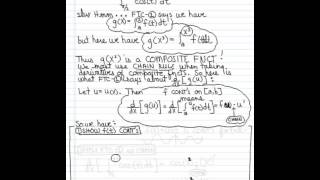 cos(t) dt
π/3
FTC-① says we have
g(x) = ∫ f(t)dt
but here we have g(x³) = ∫ f(t)dt
Thus g(x³) is a COMPOSITE FNCT!
We must use CHAIN RULE when taking
derivatives of composite fncts. So here is
what FTC-① says about d/dx [g(u)]
Let u = u(x). Then f cont's on [a,b]
means
d/dx [g(u)] = d/dx [∫ f(t)dt] = f(u) · u'
CHAIN
So we have:
① SHOW f(t) CONT'S